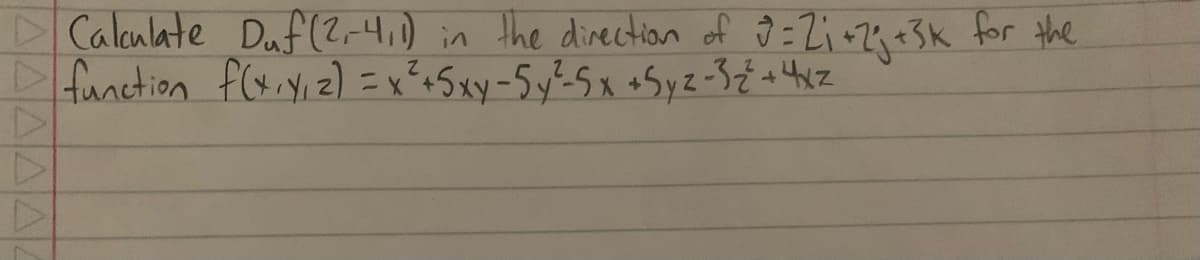 Calculate Duf(2,-4,1) in the direction of v⃗ = 2i + 2j + 3k for the
function f(x,y,z) = x²+5xy-5y²-5x+5yz-3z²+4xz